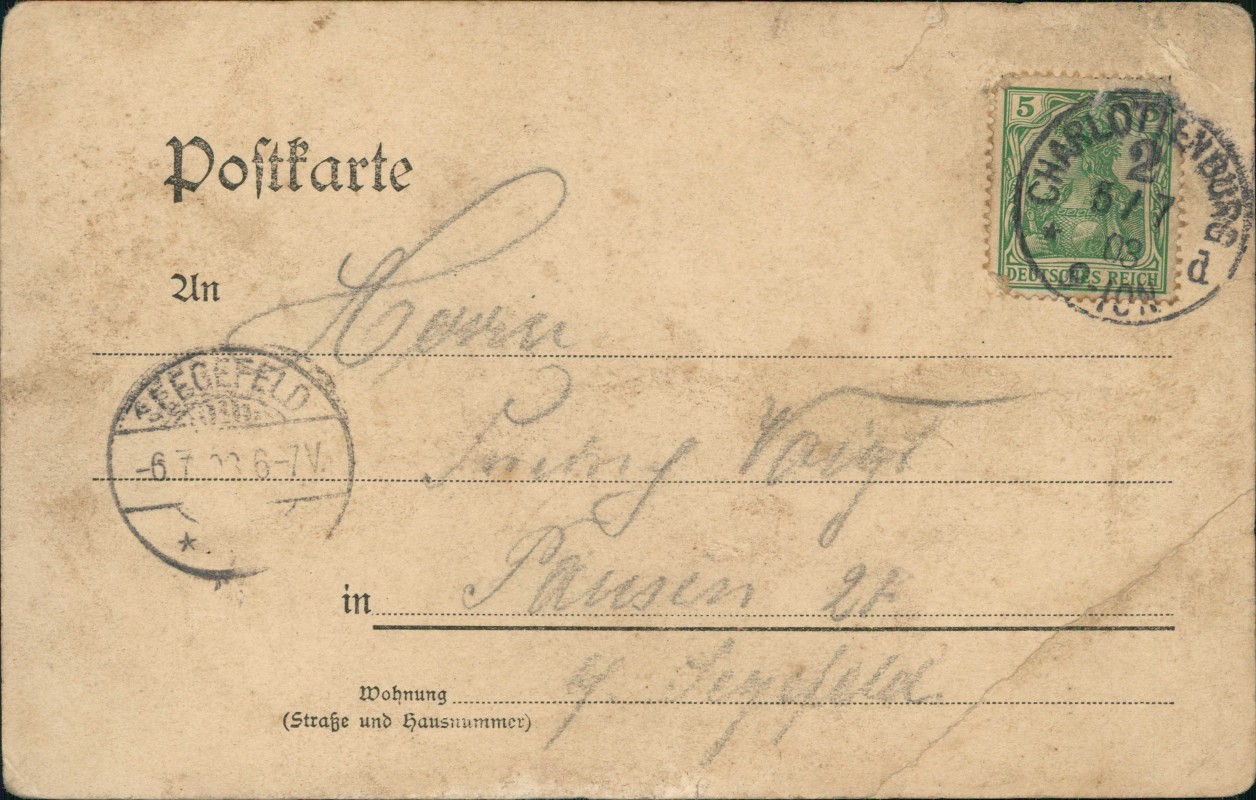 Postkarte
5
CHARLOTTENBURG
2
5/7
03
8-10N
d
DEUTSCHES REICH
An
Herrn
Voigt
SEEGEFELD
-6.7.03 6-7V.
in Pausen 27
Wohnung
(Straße und Hausnummer)